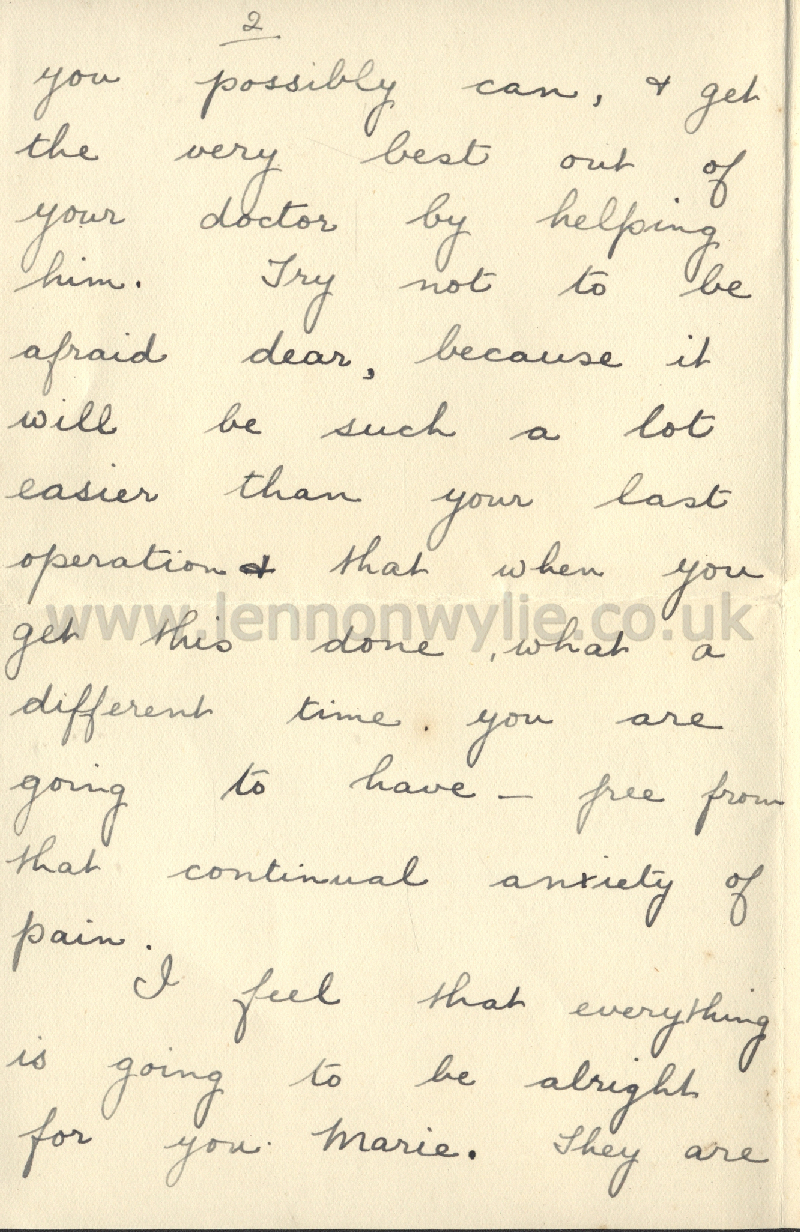 2
you possibly can, & get
the very best out of
your doctor by helping
him. Try not to be
afraid dear, because it
will be such a lot
easier than your last
operation & that when you
www.lennonwylie.co.uk
get this done, what a
different time you are
going to have — free from
that continual anxiety of
pain.
I feel that everything
is going to be alright
for you Marie. They are